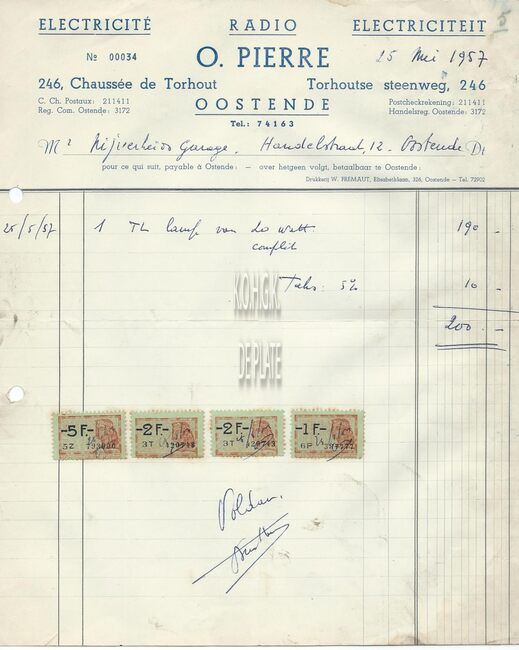 ELECTRICITÉ RADIO ELECTRICITEIT
№ 00034 O. PIERRE 25 Mei 1957
246, Chaussée de Torhout Torhoutse steenweg, 246
C. Ch. Postaux: 211411 OOSTENDE Postcheckrekening: 211411
Reg. Com. Ostende: 3172 Handelsreg. Oostende: 3172
Tel.: 74163
Mr Nijverheids Garage, Handelstraat, 12. Oostende Dt
pour ce qui suit, payable à Ostende: — over hetgeen volgt, betaalbaar te Oostende:
Drukkerij W. FREMAUT, Elisabethlaan, 326, Oostende - Tel. 72902
25/5/57 1 TL lamp van 20 watt 190 -
complet
Taks: 5% 10 -
200 -
K.O.H.G.K.
DE PLATE
-5 F- -2 F- -2 F- -1 F-
5Z 3T 3T 6P
Voldaan.